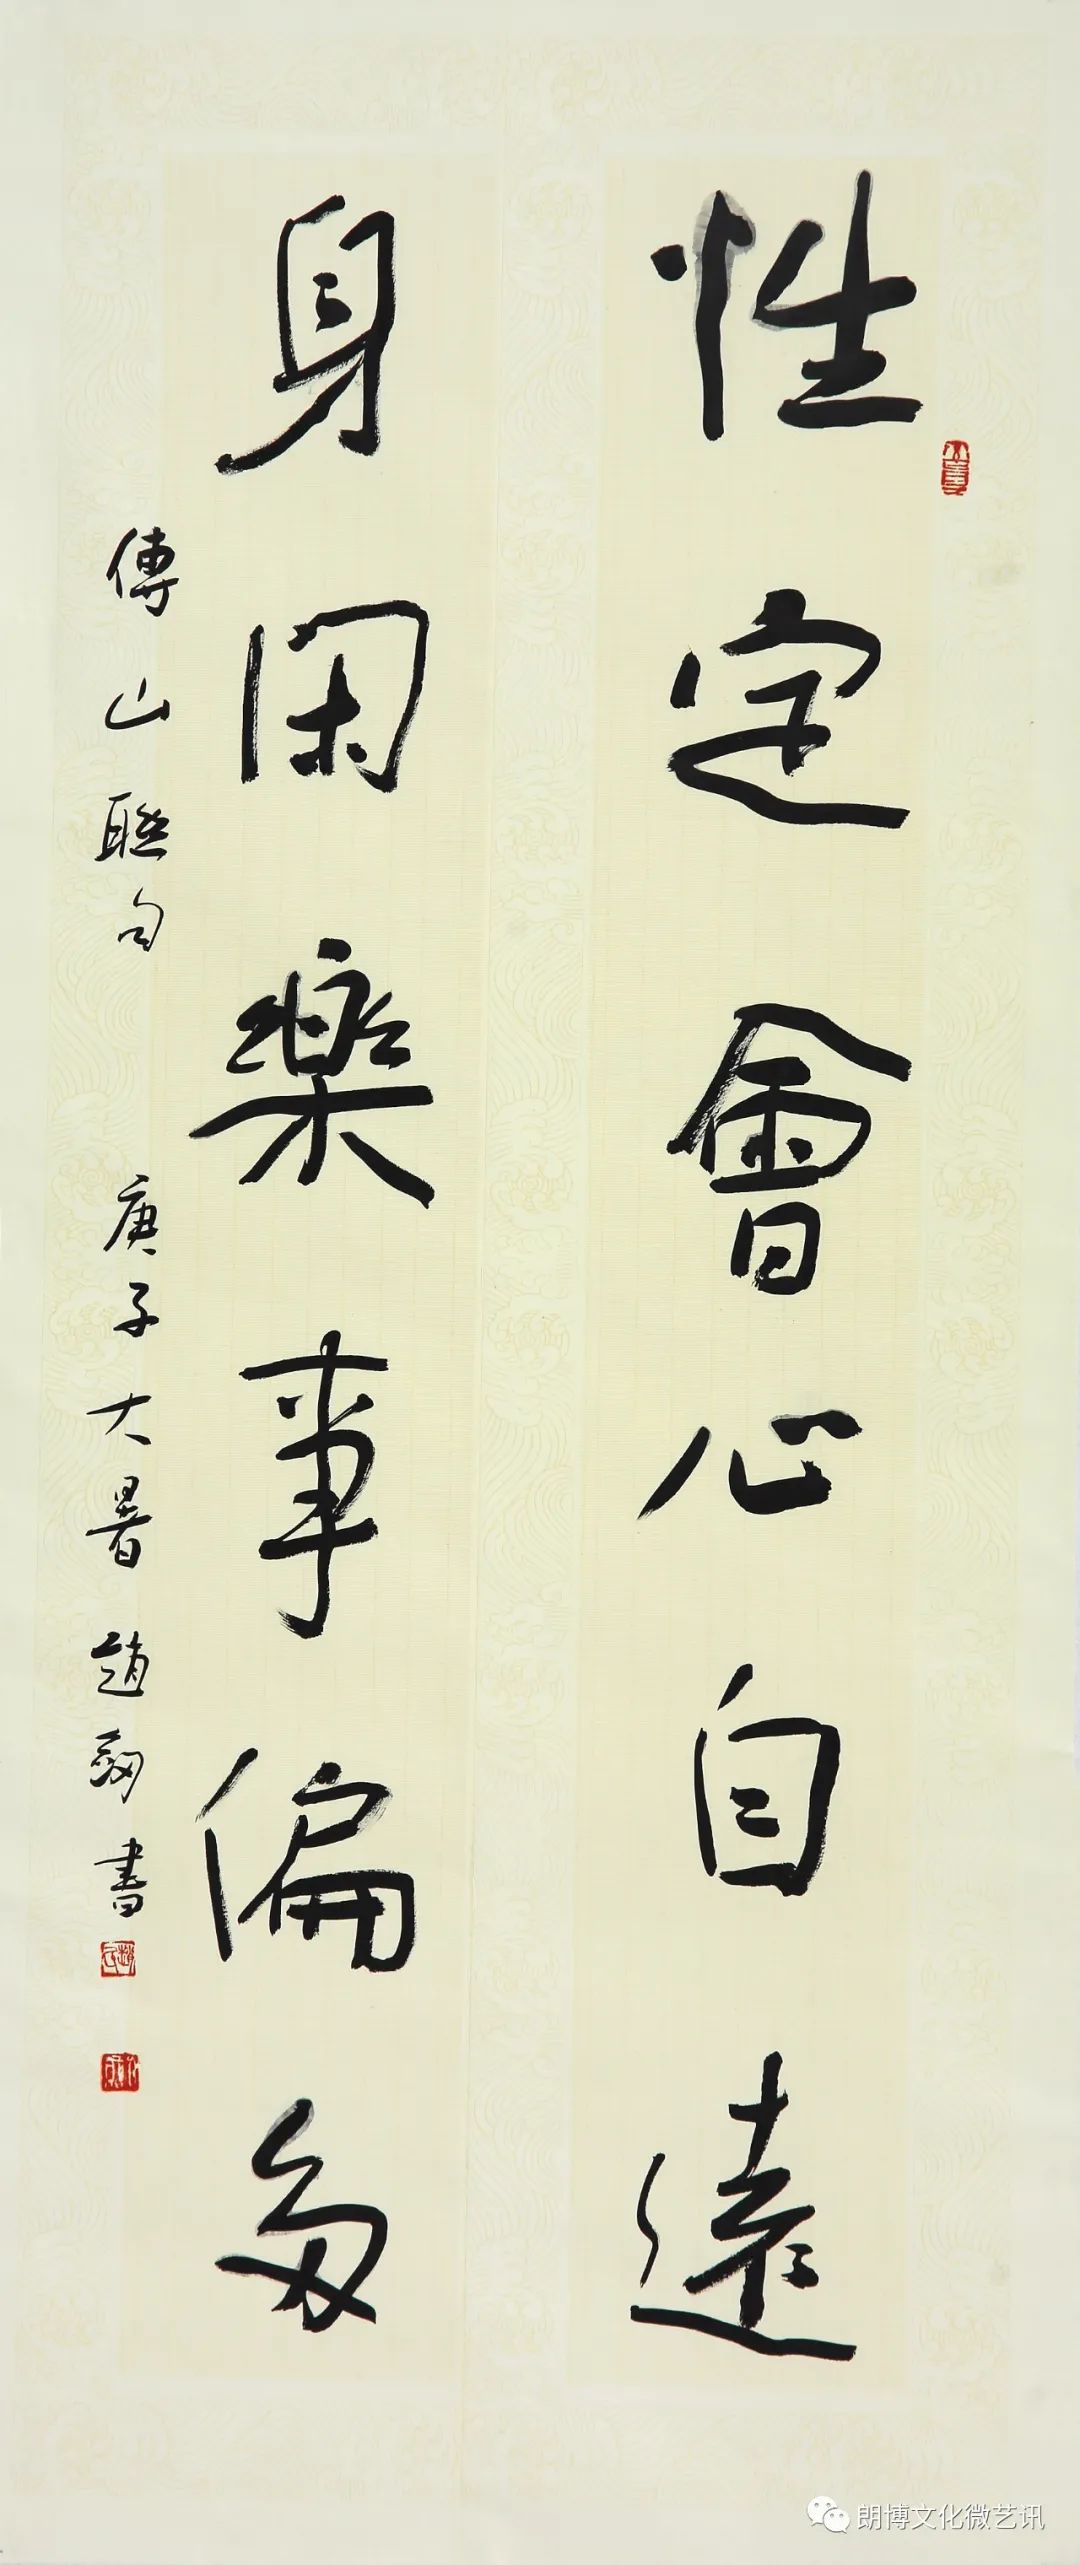 性定會心自遠
身閑樂事偏多
傅山聯句 庚子大暑 趙劍書
朗博文化微艺讯